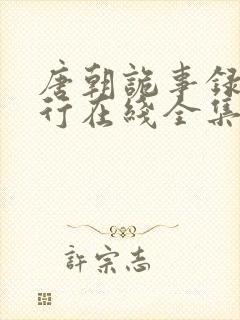 唐朝詭事錄
行在綫全集
許宗志